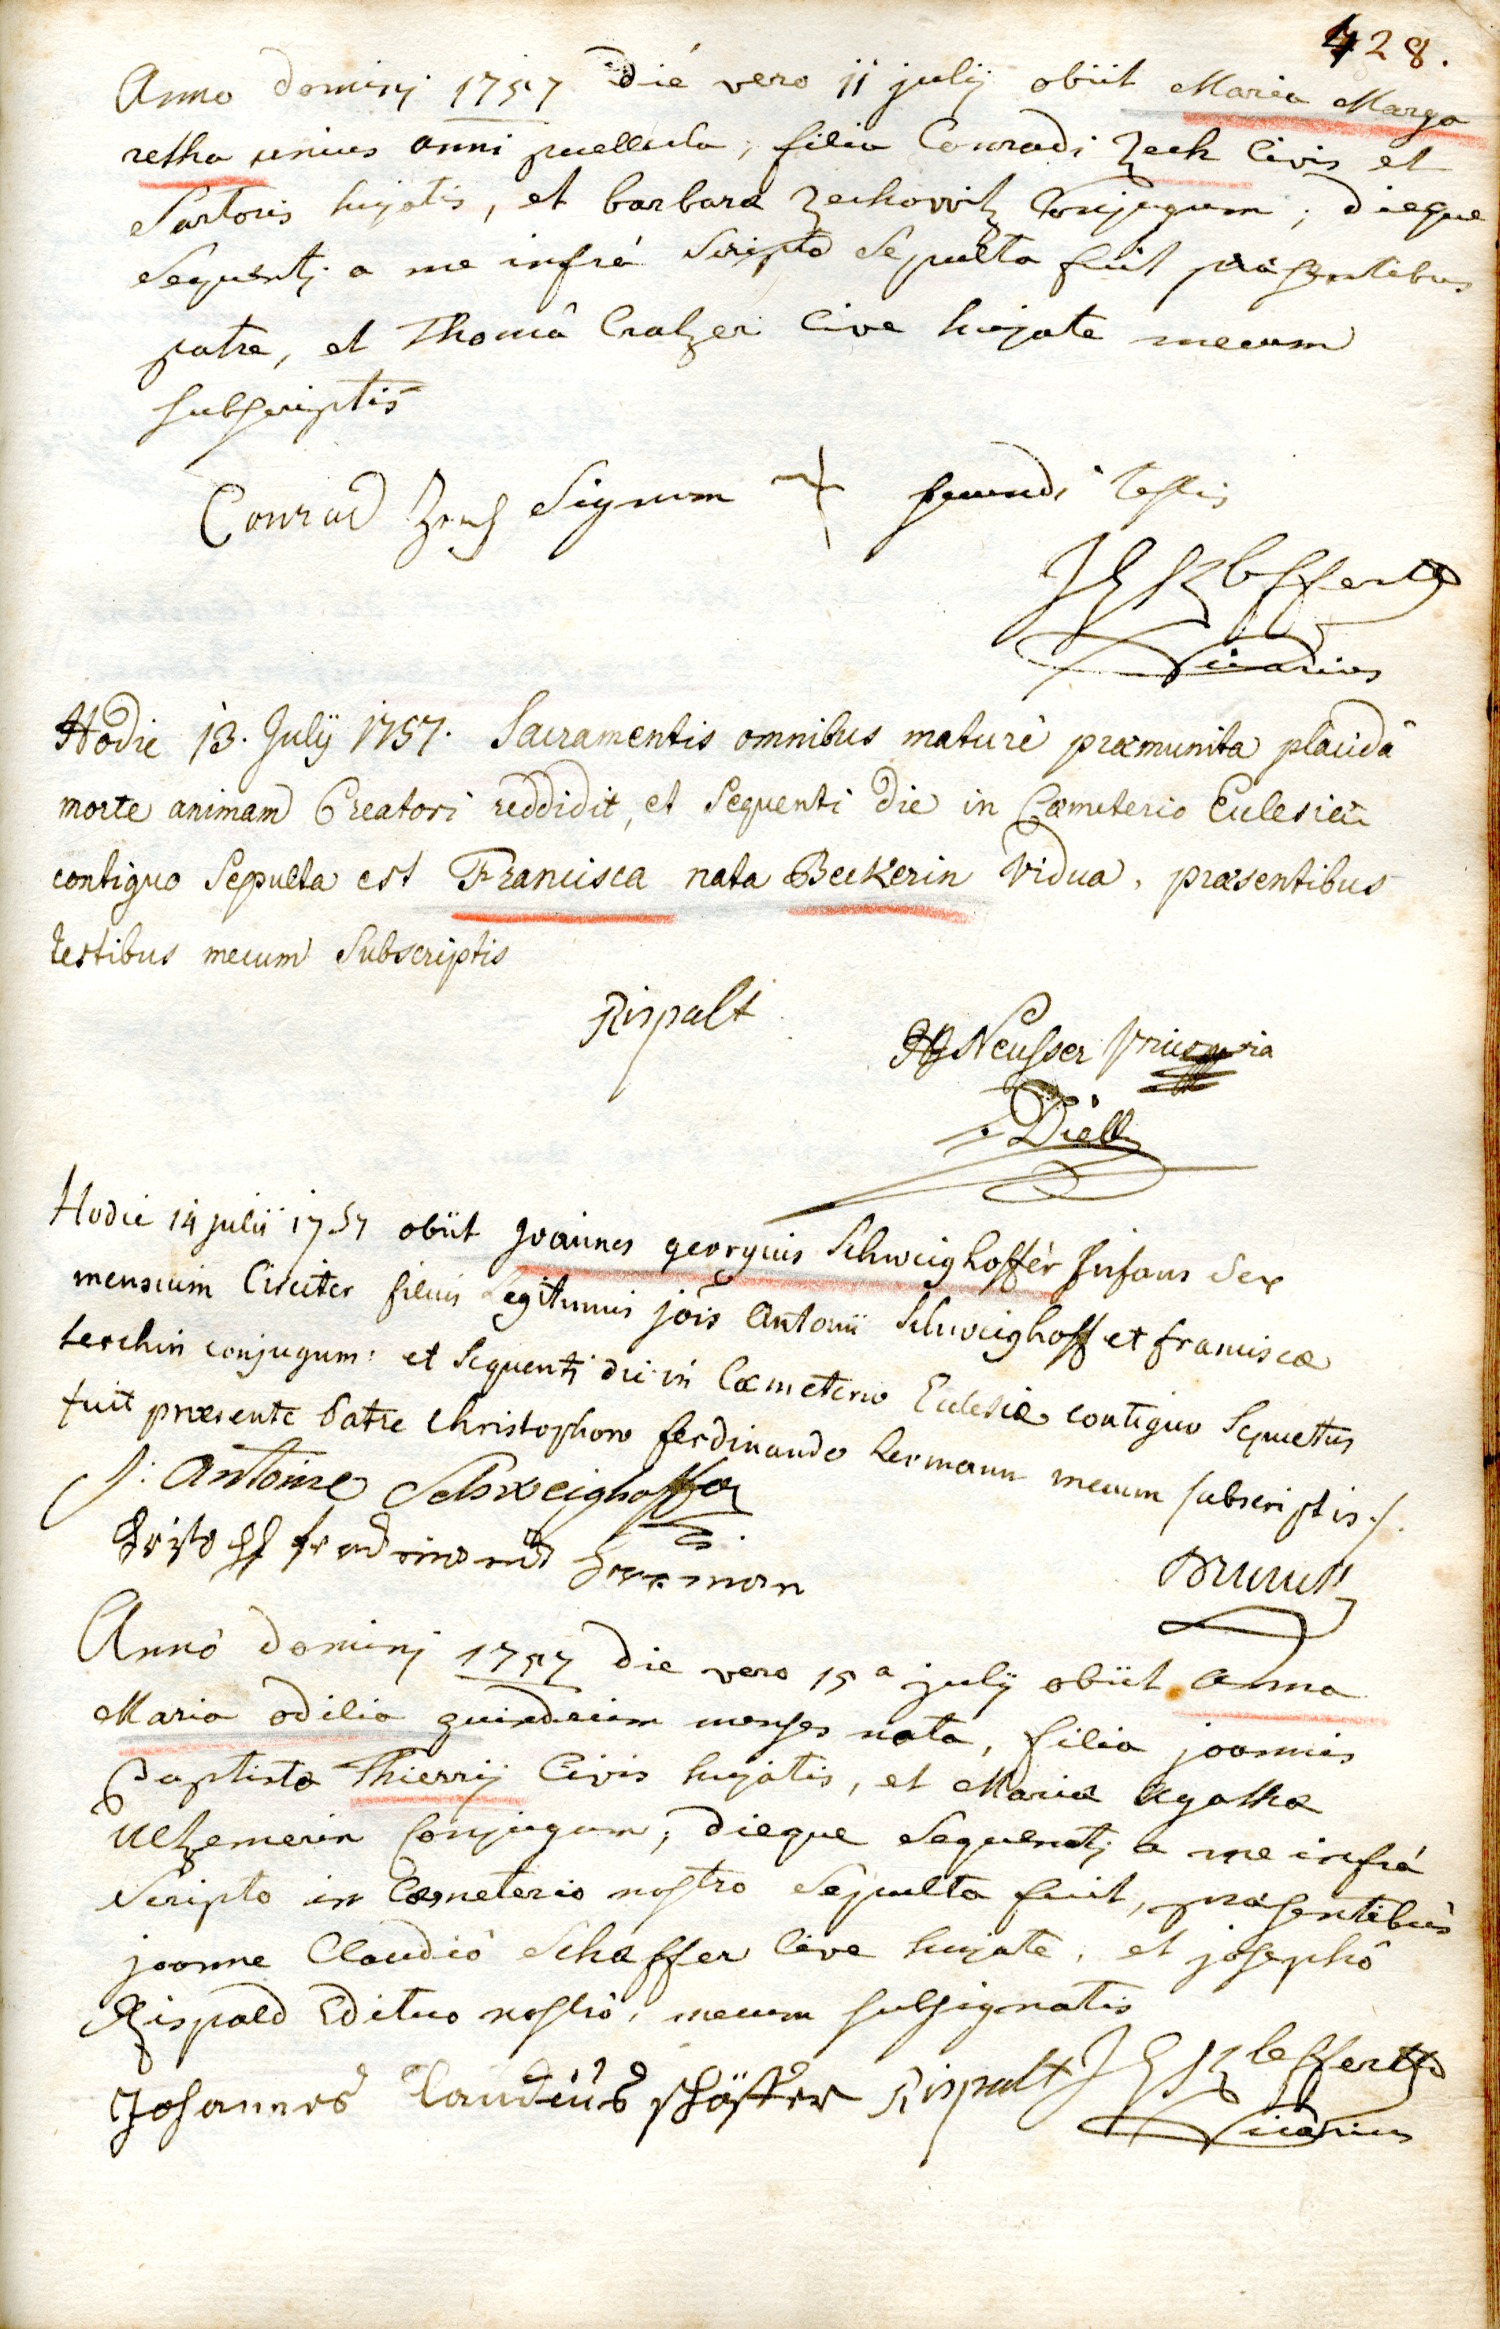 428.
Anno dominj 1757 Die vero 11 julij obiit Maria Marga
retha unius anni puellula, filia Conradi Zech Civis et
Sartoris hujatis, et barbara Zechowitz Conjugum; dieque
Sequentj a me infrá Scripto Sepulta fuit præsentibus
patre, et Thomâ Cratzer Cive hujate mecum
subscriptis
Conrad Zech Signum + secundi testis
Vicarius
Hodie 13. Julij 1757. Sacramentis omnibus maturè præmunita placidâ
morte animam Creatori reddidit, et Sequenti die in Cœmeterio Eclesiæ
contiguo Sepulta est Francisca nata Beckerin Vidua, præsentibus
testibus mecum Subscriptis
Rispalt
Neusser
Diell
Hodie 14 julii 1757 obiit Joannes georgius Schweighoffer Infans Sex
mensium Circiter filius Legitimus jois Antonii Schweighoff et franciscæ
lerchin conjugum: et Sequenti die in Cœmeterio Eclesiæ contiguo Sepultus
fuit præsente Patre Christophoro ferdinando hermann mecum subscriptis./.
J: Antoine Schweighoffer
ferdinand herman
Anno dominj 1757 die vero 15a julij obiit Anna
Maria odilia quindecim menses nata, filia joannis
Baptista Thierrij Civis hujatis, et Mariæ Agathæ
Conjugum; dieque Sequentj a me infrá
Scripto in Cœmeterio nostro Sepulta fuit, præsentibus
joanne Claudiô Schæffer Cive hujate, et josephô
Rispald Edituo nostrô, mecum subsignatis
Johannes Claudius schäffer Rispalt
Vicarius